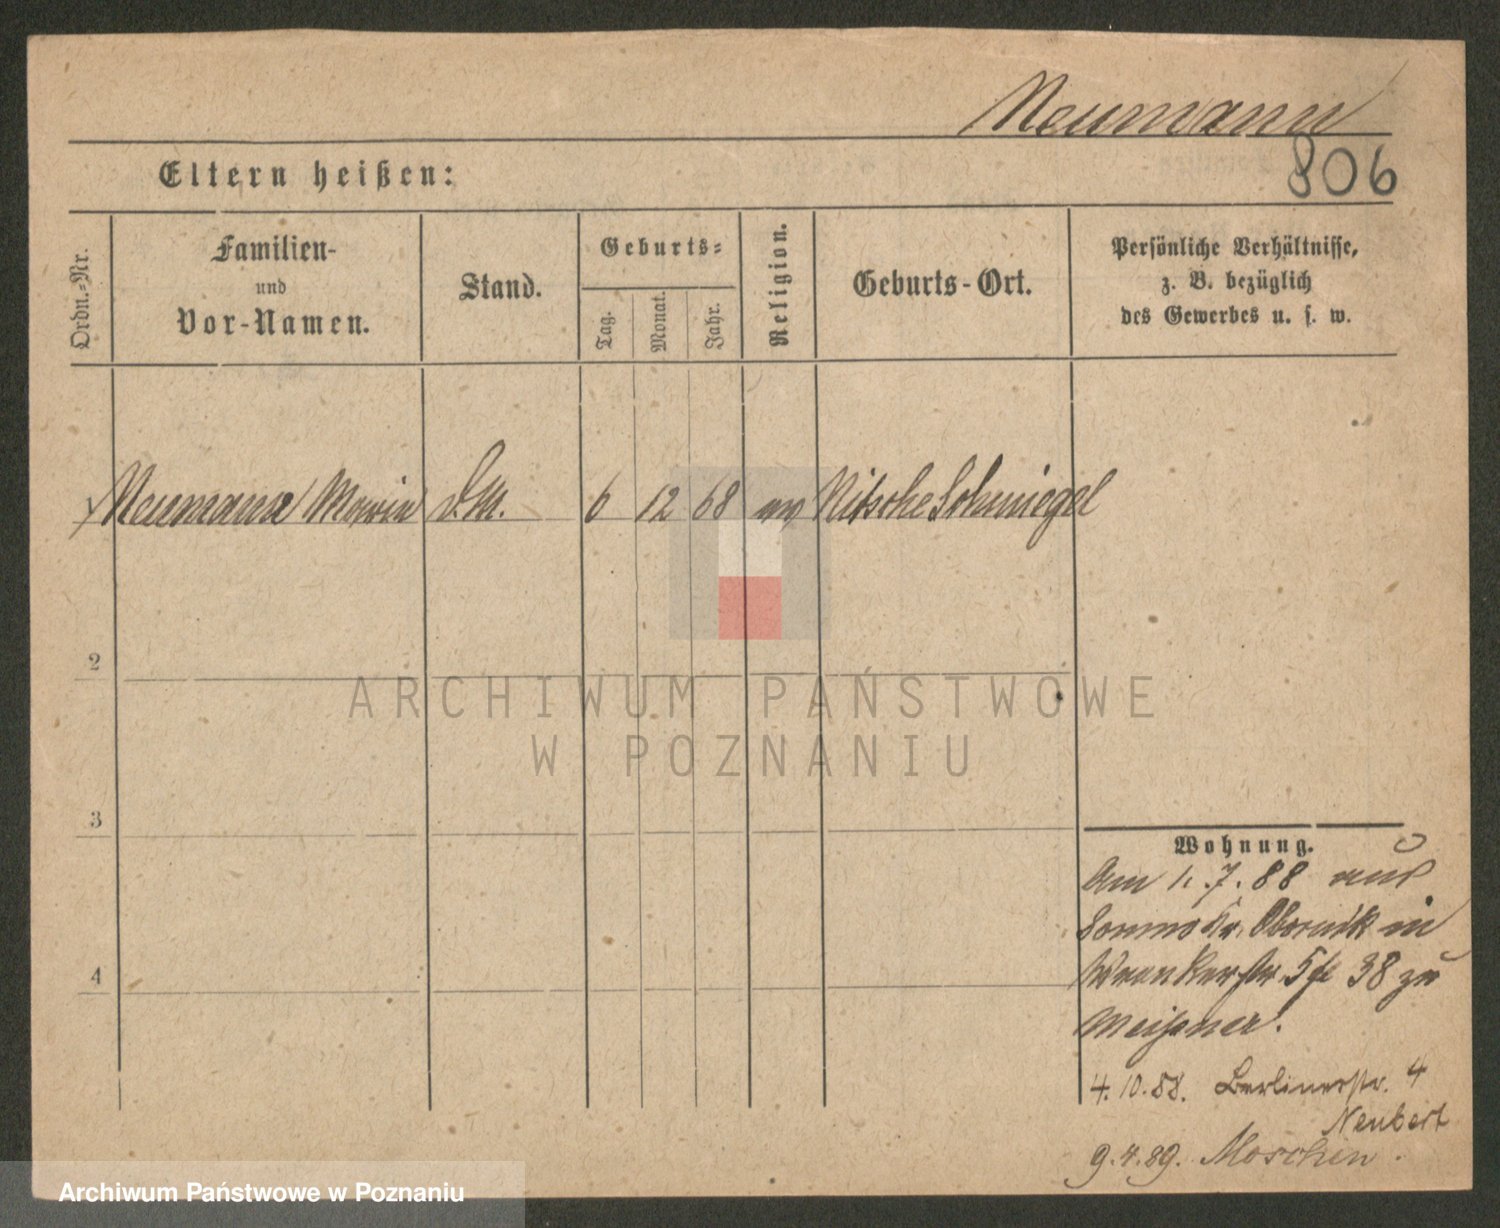 Neumann
806
Eltern heißen:
Ordn.-Nr.
Familien-
und
Vor-Namen.
Stand.
Geburts-
Tag.
Monat.
Jahr.
Religion.
Geburts-Ort.
Persönliche Verhältnisse,
z. B. bezüglich
des Gewerbes u. s. w.
Neumann Marie D.M. 6 12 68 ev Nitsche Schmiegel
2
3
4
Wohnung.
Am 1. 7. 88 aus
Kr. Obornik in
Wronkerstr. 38 zu
Meißner.
4.10.88. Berlinerstr. 4
Neubert
9.4.89. Moschin.
ARCHIWUM PAŃSTWOWE
W POZNANIU
Archiwum Państwowe w Poznaniu